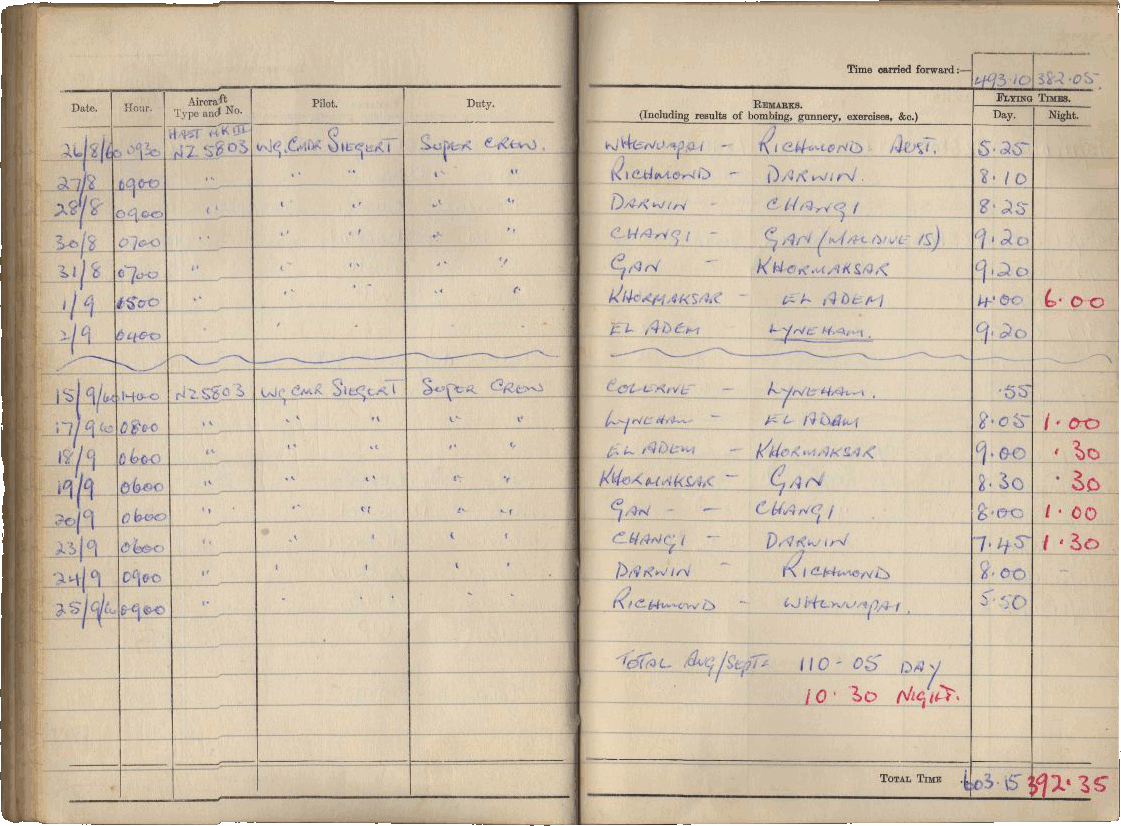 Time carried forward:— 493.10 382.05
Date. Hour. Aircraft Type and No. Pilot. Duty. REMARKS. (Including results of bombing, gunnery, exercises, &c.) FLYING TIMES. Day. Night.
HAST MK III
26/8/60 0930 NZ 5803 WG. CMDR SIEGERT SUPER CREW. WHENUAPAI - RICHMOND AUST. 5.25
27/8 0900 " " " " " RICHMOND - DARWIN. 8.10
28/8 0900 " " " " " DARWIN - CHANGI 8.25
30/8 0700 " " " " " CHANGI - GAN (MALDIVE IS) 9.20
31/8 0700 " " " " " GAN - KHORMAKSAR 9.20
1/9 0500 " " " " " KHORMAKSAR - EL ADEM 4.00 6.00
2/9 0400 " " " " " EL ADEM LYNEHAM. 9.20
15/9/60 1400 NZ5803 WG. CMR SIEGERT SUPER CREW COLERNE - LYNEHAM. .55
17/9/60 0800 " " " " " LYNEHAM - EL ADAM 8.05 1.00
18/9 0600 " " " " " EL ADEM - KHORMAKSAR 9.00 .30
19/9 0600 " " " " " KHORMAKSAR - GAN 8.30 .30
20/9 0600 " " " " " GAN - - CHANGI 8.00 1.00
23/9 0600 " " " " " CHANGI - DARWIN 7.45 1.30
24/9 0900 " " " " " DARWIN - RICHMOND 8.00 -
25/9/60 0900 " " " " " RICHMOND - WHENUAPAI. 5.50
TOTAL AUG/SEPT= 110-05 DAY
10.30 NIGHT.
TOTAL TIME 603.15 392.35